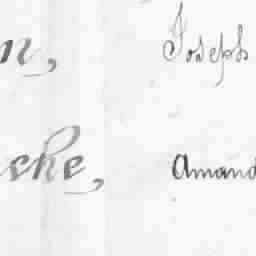 n, Joseph
eke, Amand